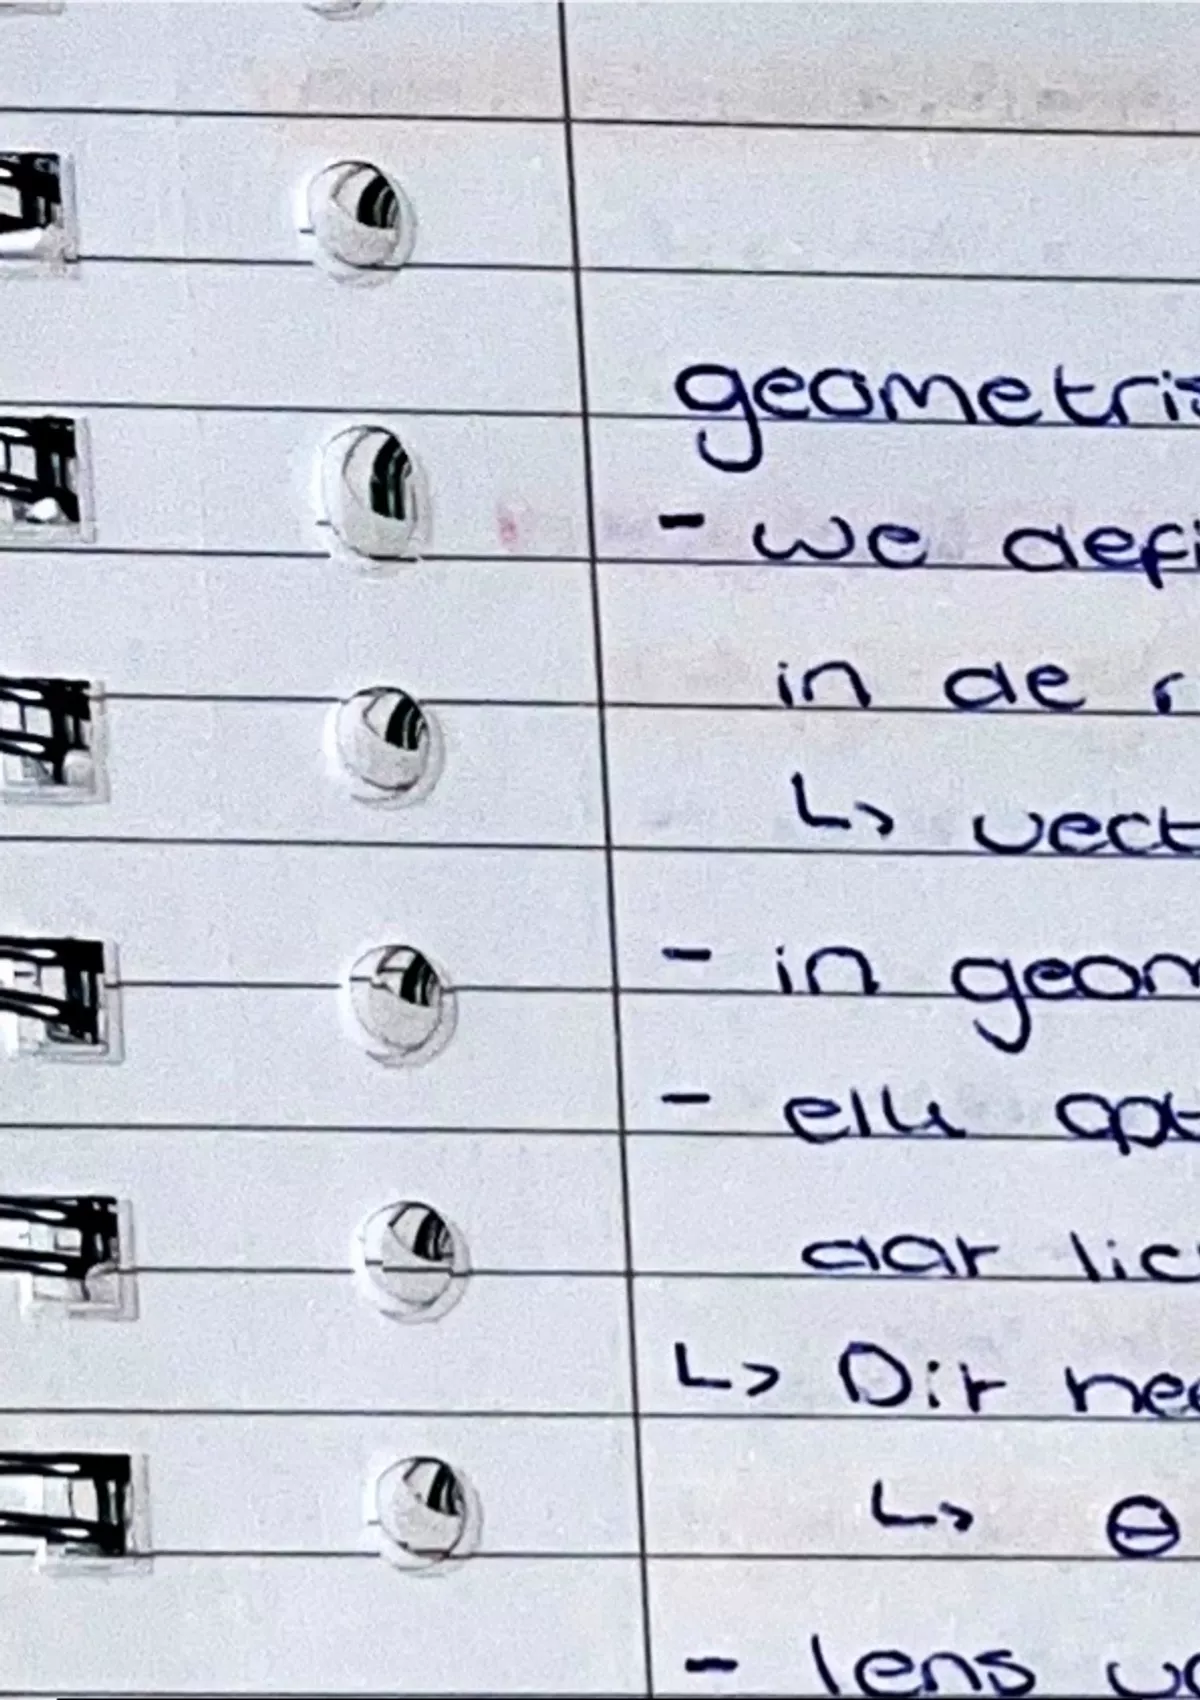 geometris
- we defi
in de r
↳ vect
- in geom
- elk opt
dar lic
↳ Dit nee
↳ ⊖
- lens vo